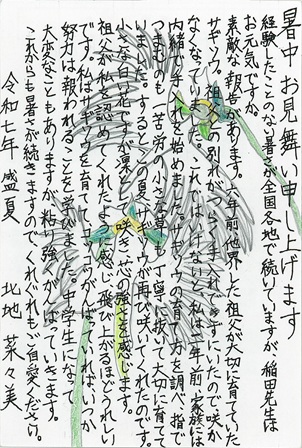 暑中お見舞い申し上げます
経験したことのない暑さが全国各地で続いていますが、稲田先生は
お元気ですか。
素敵な報告があります。六年前、他界した祖父が大切に育てていた
サギソウ。祖父との別れがつらく手入れできずにいたので咲か
なくなっていました。これではいけないと、私は一年前、家族には
内緒で手入れを始めました。サギソウの育て方を調べ、指で
つまむのも一苦労の小さな草も丁寧に抜いて大切に育てて
いました。するとこの夏、サギソウが再び咲いてくれたのです。
小さな白い花ですが、凛として咲き、芯の強さを感じます。
祖父が私を認めてくれたように感じ、飛び上がるほどうれしい
です。私はサギソウを育てて、コツコツがんばっていれば、いつか
努力は報われることを学びました。中学生になって
大変なこともありますが、粘り強くがんばっていきます。
これからも暑さが続きますので、くれぐれもご自愛ください。
令和七年 盛夏
北地 菜々美